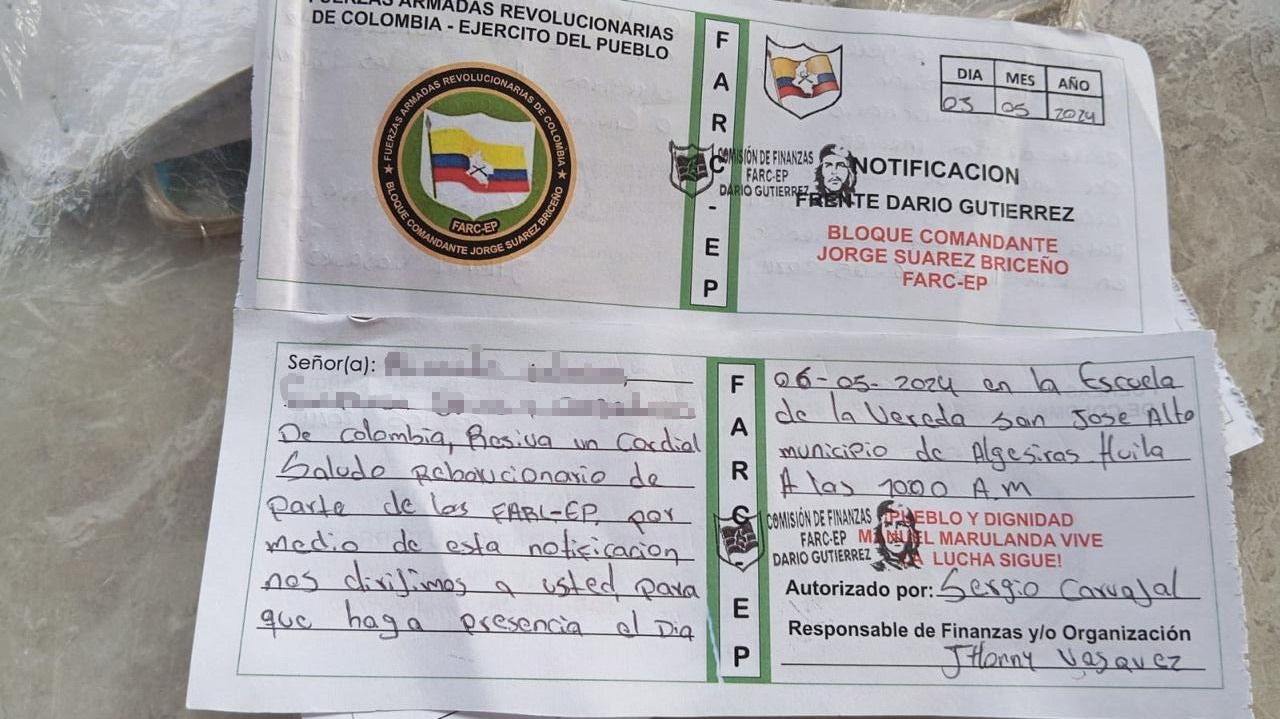 FUERZAS ARMADAS REVOLUCIONARIAS
DE COLOMBIA - EJERCITO DEL PUEBLO
★ FUERZAS ARMADAS REVOLUCIONARIAS DE COLOMBIA ★
FARC-EP
BLOQUE COMANDANTE JORGE SUAREZ BRICEÑO
FARC-EP
DIA MES AÑO
03 05 2024
COMISIÓN DE FINANZAS
FARC-EP
DARIO GUTIERREZ
NOTIFICACION
FRENTE DARIO GUTIERREZ
BLOQUE COMANDANTE
JORGE SUAREZ BRICEÑO
FARC-EP
Señor(a):
De colombia, Resiva un Cordial
Saludo Rebolucionario de
parte de las FARC-EP, por
medio de esta notificacion
nos dirijimos a usted, para
que haga presencia el Dia
FARC-EP
06-05-2024 en la Escuela
de la Vereda San Jose Alto
municipio de Algesiras Huila
A las 1000 A.M
COMISIÓN DE FINANZAS
FARC-EP
DARIO GUTIERREZ
¡PUEBLO Y DIGNIDAD
MANUEL MARULANDA VIVE
LA LUCHA SIGUE!
Autorizado por: Sergio Carvajal
Responsable de Finanzas y/o Organización
JHonny Vasquez